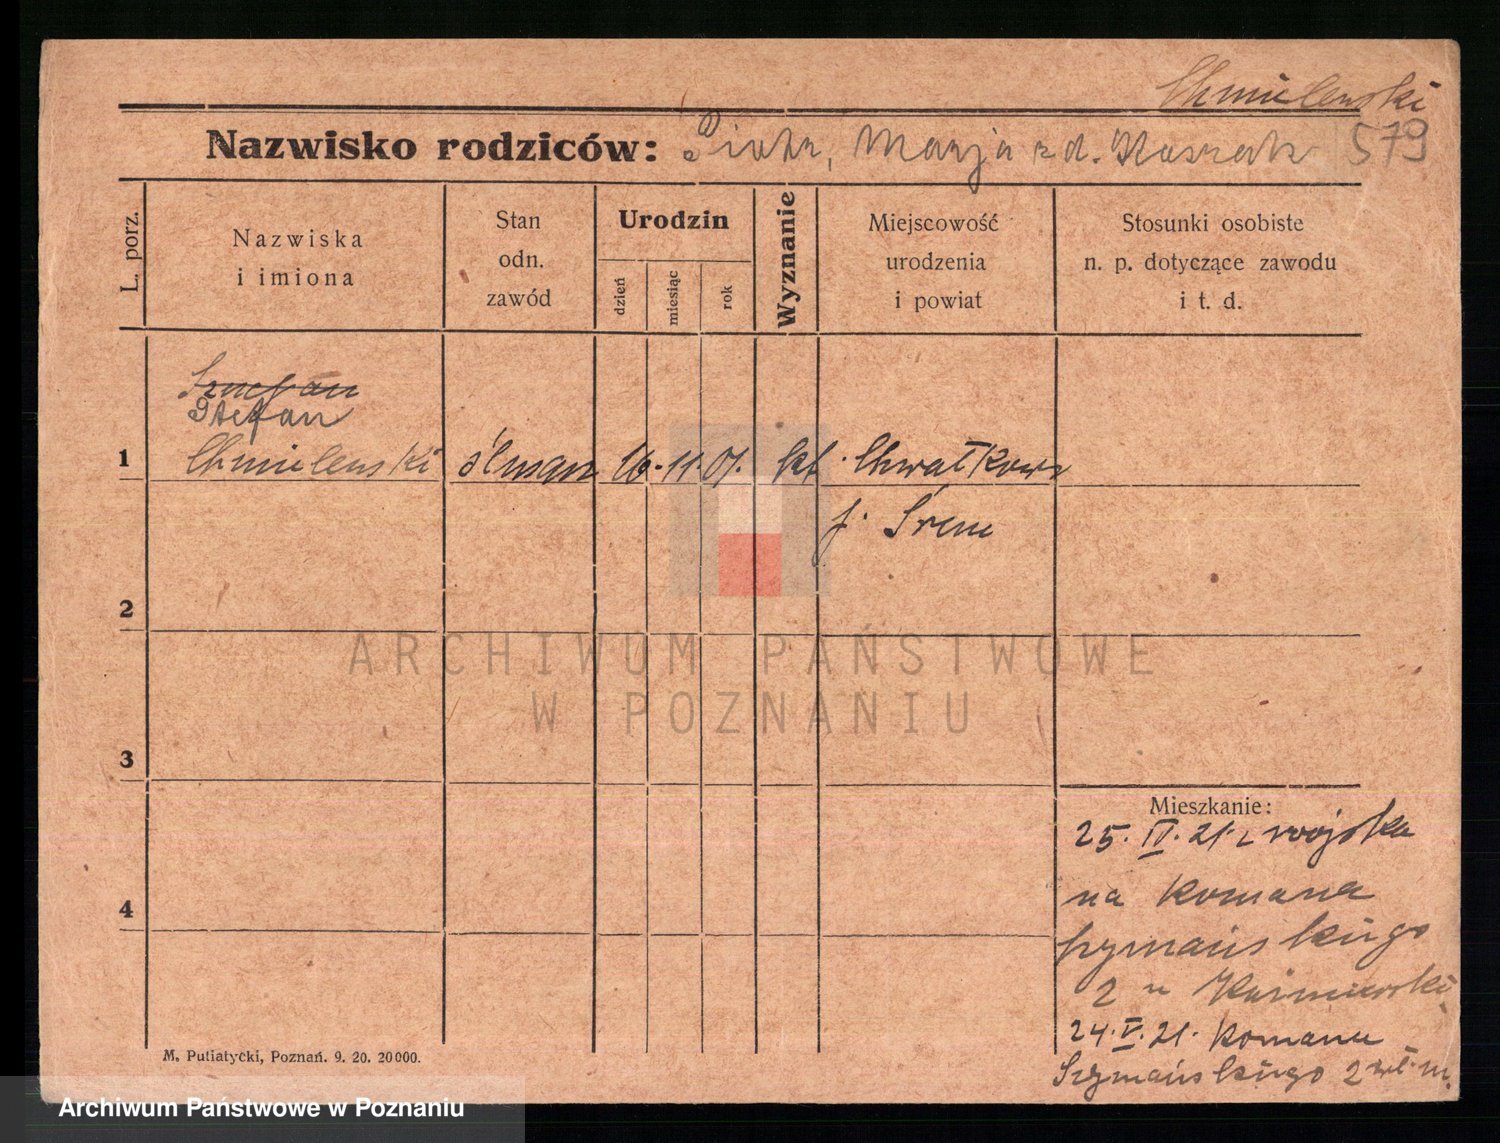 Chmielewski
Nazwisko rodziców: Piotr, Marja z d. Staszak 579
L. porz.
Nazwiska
i imiona
Stan
odn.
zawód
Urodzin
dzień
miesiąc
rok
Wyznanie
Miejscowość
urodzenia
i powiat
Stosunki osobiste
n. p. dotyczące zawodu
i t. d.
Szczepan
Stefan
1 Chmielewski ślusarz 16. 11. 01. kat. Chwałkowo
p. Śrem
2
3
4
Mieszkanie:
25. IV. 21. z wojska
na Romana
Szymańskiego
2 u Kaźmierski
24. V. 21. Romana
Szymańskiego 2 wł. m.
M. Putiatycki, Poznań. 9. 20. 20000.
ARCHIWUM PAŃSTWOWE
W POZNANIU
Archiwum Państwowe w Poznaniu